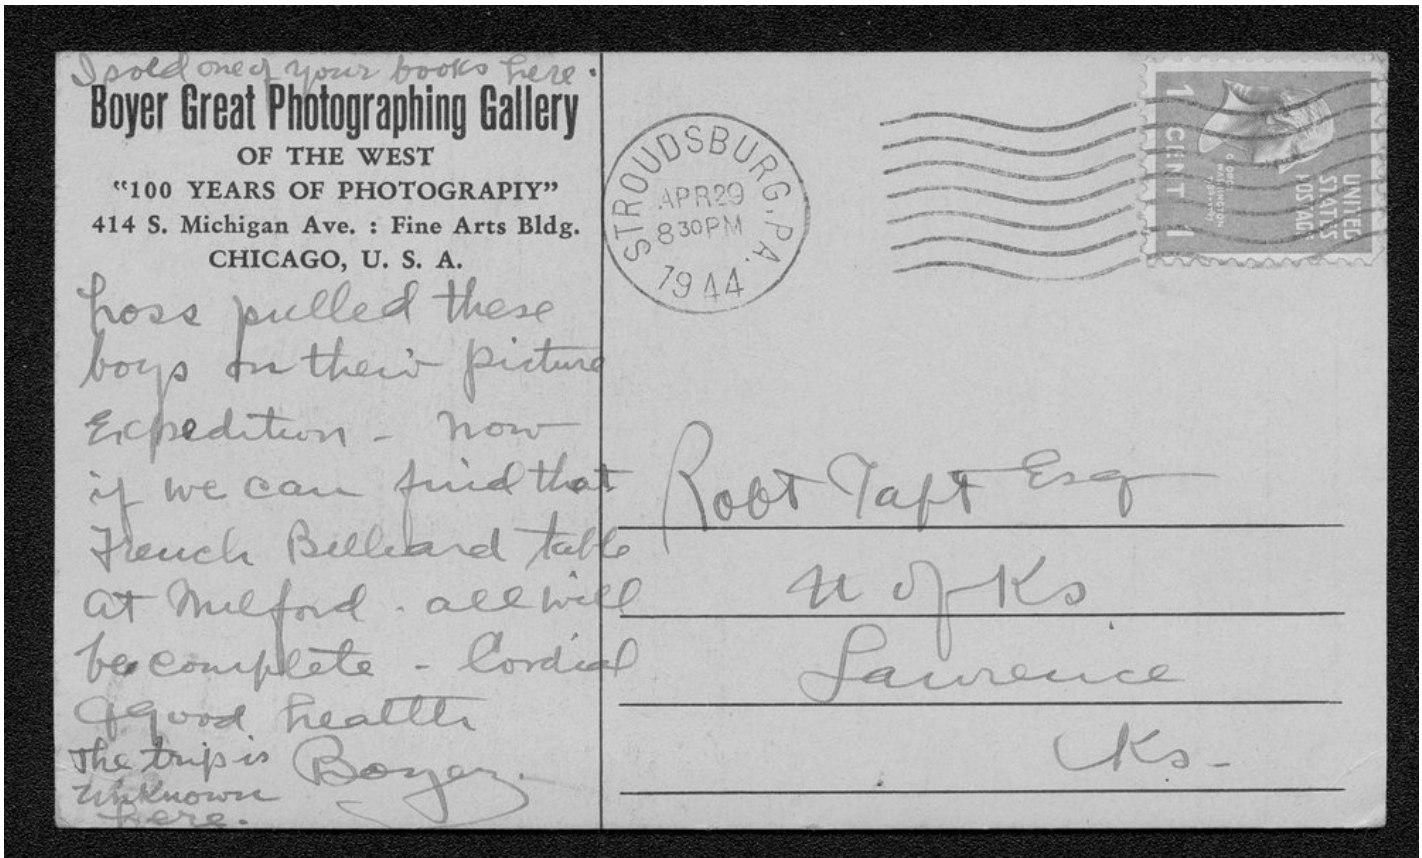 I sold one of your books here.
Boyer Great Photographing Gallery
OF THE WEST
"100 YEARS OF PHOTOGRAPIY"
414 S. Michigan Ave. : Fine Arts Bldg.
CHICAGO, U. S. A.
hoss pulled these
boys on their picture
Expedition - now
if we can find that
French Billiard table
at Milford - all will
be complete - Cordial
& good health
Boyer.
The trip is
unknown
here.
STROUDSBURG, PA.
APR 29
8 30 PM
1944
UNITED
STATES
POSTAGE
1 CENT 1
Robt Taft Esq
U of Ks
Lawrence
Ks-